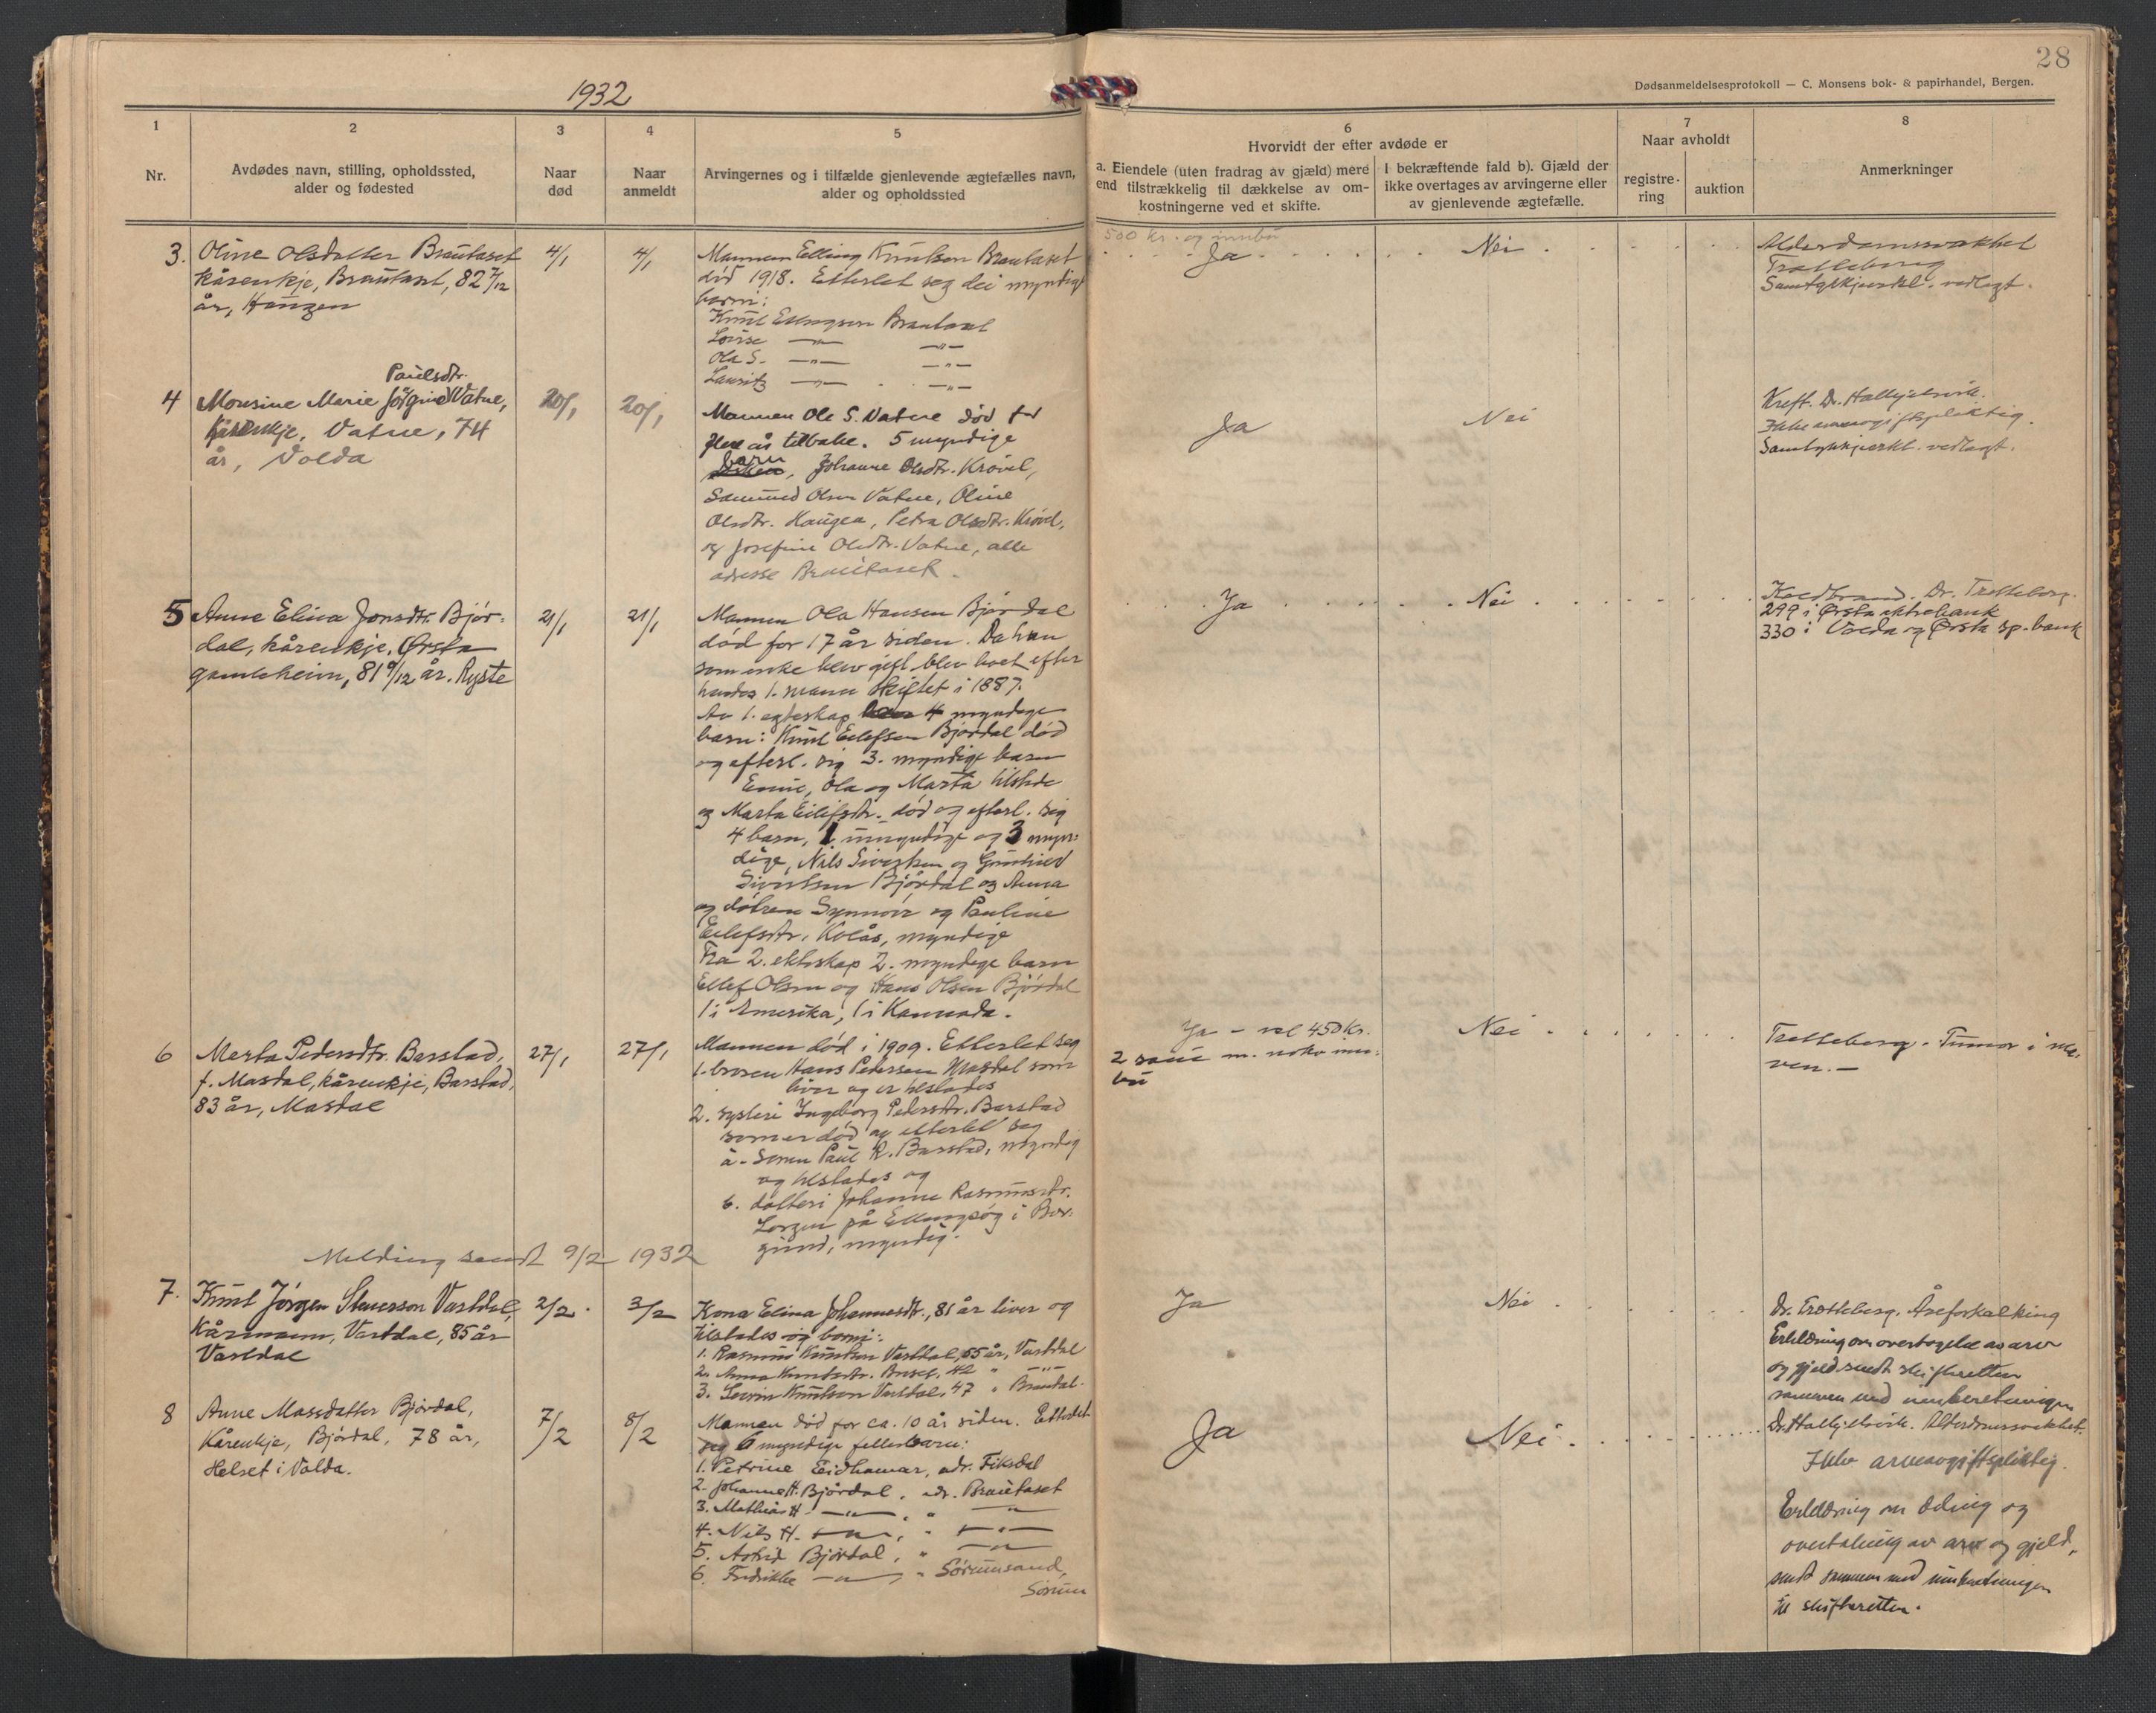 28
Dødsanmeldelsesprotokoll — C. Monsens bok- & papirhandel, Bergen.
1932
1
2
3
4
5
6
7
8
Nr.
Avdødes navn, stilling, opholdssted,
alder og fødested
Naar
død
Naar
anmeldt
Arvingernes og i tilfælde gjenlevende ægtefælles navn,
alder og opholdssted
Hvorvidt der efter avdøde er
a. Eiendele (uten fradrag av gjæld) mere
end tilstrækkelig til dækkelse av om-
kostningerne ved et skifte.
I bekræftende fald b). Gjæld der
ikke overtages av arvingerne eller
av gjenlevende ægtefælle.
Naar avholdt
registre-
ring
auktion
Anmerkninger
3.
Oline Olsdatter Brautaset
kårenkje, Brautaset, 82 7/12
år, Haugen
4/1
4/1
Mannen Elling Knutsen Brautaset
død 1918. Etterlet seg dei myndige
borni:
Knut Ellingsen Brautaset
Lovise —"— —"—
Ola S. —"— —"—
Lauritz —"— —"—
500 kr. og innbu
Ja
Nei
Alderdomssvakhet
Trætteberg
Samtykkjeerkl. vedlagt.
4
Paulsdtr.
Monsine Marie Jörgine Vatne,
Kårenkje, Vatne, 74
år, Volda
20/1
20/1
Mannen Ole S. Vatne død for
flere år tilbake. 5 myndige
barn, Johanne Olsdtr. Krøvel,
Samund Olsen Vatne, Oline
Olsdtr. Haugen, Petra Olsdtr. Krøvel,
og Josefine Olsdtr. Vatne, alle
adresse Brautaset.
Ja
Nei
Kreft. Dr. Hallkjelsvik.
Ikke arveavgiftspliktig.
Samtykkjeerkl. vedlagt.
5
Anne Elina Jonsdtr. Bjør-
dal, kårenkje, Ørsta
gamleheim, 81 9/12 år. Ryste
21/1
21/1
Mannen Ola Hansen Bjørdal
død for 17 år siden. Da hun
som enke blev gift blev boet efter
hendes 1. mann skiftet i 1887.
Av 1. egteskap 4 myndige
barn: Knut Eilefsen Bjørdal død
og efterl. sig 3. myndige barn
Ennie, Ola og Marta tilstede
og Marta Eilifsdtr. død og efterl. sig
4 barn, 1 umyndige og 3 myn-
dige, Nils Sivertsen og
Sivertsen Bjørdal og Anna
og døtrene Synnøve og Pauline
Eilefsdtr. Kolås, myndige
Fra 2. ekteskap 2. myndige barn
Ellef Olsen og Hans Olsen Bjørdal
1 i Amerika, 1 i Kannada.
Ja
Nei
Koldbrand. Dr. Trætteberg.
299 i Ørsta aktiebank
330 i Volda og Ørsta sp.bank
6
Marta Pedersdtr. Barstad,
f. Masdal, kårenkje, Barstad,
83 år, Masdal
27/1
27/1
Mannen død i 1909. Etterlet seg
1. broren Hans Pedersen Masdal som
liver og er tilstades
2. systeri Ingeborg Pedersdtr. Barstad
som er død og etterlet seg
a. Sonen Paul R. Barstad, myndig
og tilstades og
b. dotteri Johanne Rasmusdtr.
på Ellingsøy i Bor-
gund, myndig.
Ja - vel 450 kr.
2 m. noko inn-
bu
Nei
Trætteberg. Tumor i ma-
ven.—
Melding sendt 9/2 1932
7.
Knut Jörgen Stenersson Vartdal,
Kårmann, Vartdal, 85 år
Vartdal
2/2
3/2
Kona Elina Johannesdtr., 81 år liver og
tilstades og borni:
1. Rasmus Knutsen Vartdal, 55 år, Vartdal
2. Anna Knutsdtr. "
3. Knutsen Vartdal, 47 "
Ja
Nei
Dr. Trætteberg. Åreforkalking
Erklæring om overtagelse av arv
og gjeld sendt skifteretten
sammen med innberetningen
8
Anne Massdatter Bjørdal,
Kårenkje, Bjørdal, 78 år,
Helset i Volda.
7/2
8/2
Mannen død for ca. 10 år siden. Etterlet
seg 6 myndige fellesbarn:
1. Petrine Eidhamar, adr. Fiksdal
2. Johanne H. Bjørdal, adr. Brautaset
3. Mathias H. —"— " —"—
4. Nils H. —"— " —"—
5. Astrid Bjørdal, " —"—
6. Fredrikke —"— " Sørumsand,
Sørum
Ja
Nei
Dr. Hallkjelsvik. Alderdomssvakhet.
Ikke arveavgiftspliktig.
Erklæring om deling og
overtaking av arv og gjeld,
sendt sammen med innberetningen
til skifteretten.